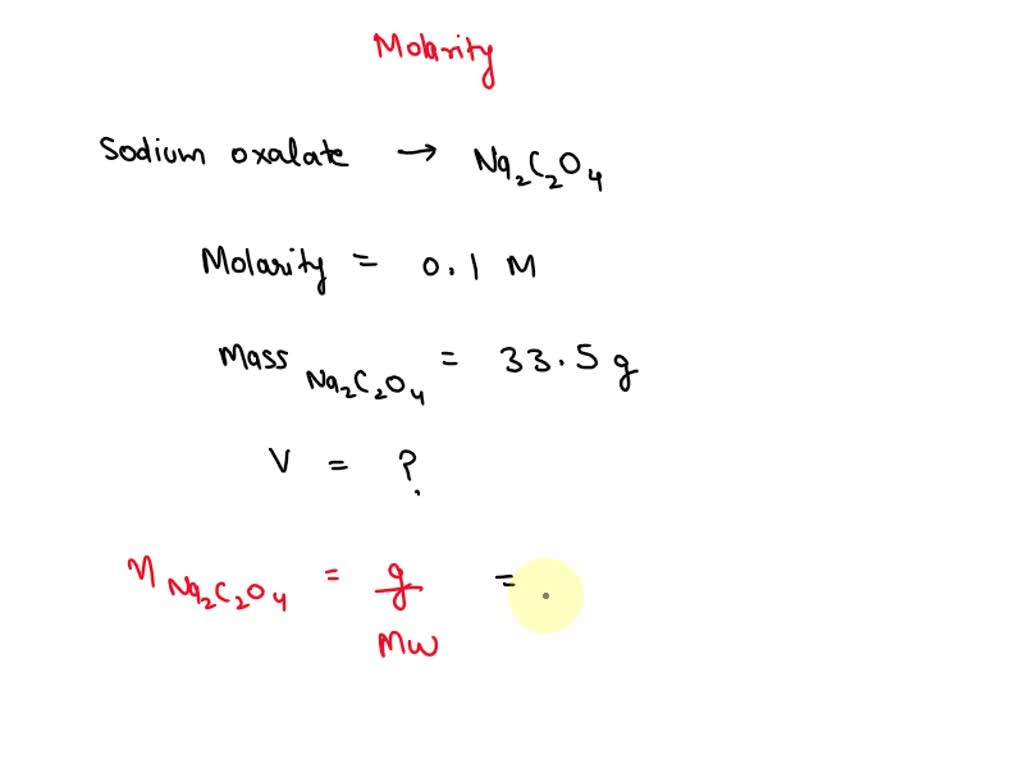 Molarity
Sodium oxalate → Na₂C₂O₄
Molarity = 0.1 M
Mass Na₂C₂O₄ = 33.5 g
V = ?
n Na₂C₂O₄ = g/Mw =